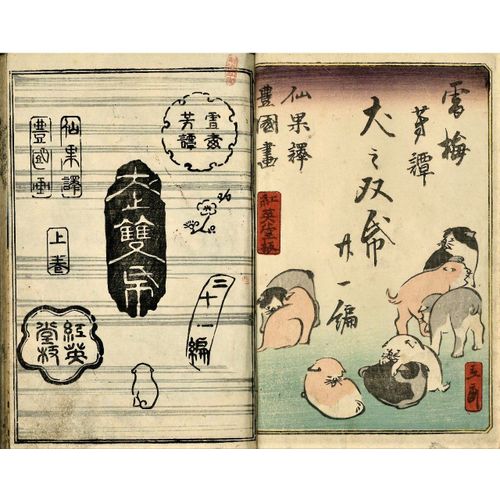 雪梅
芳譚
犬之双帋
廿一編
仙果譯
豊國畫
紅英堂梓
雪梅
芳譚
二十一編
仙果譯
豊國画
上巻
紅英
堂梓